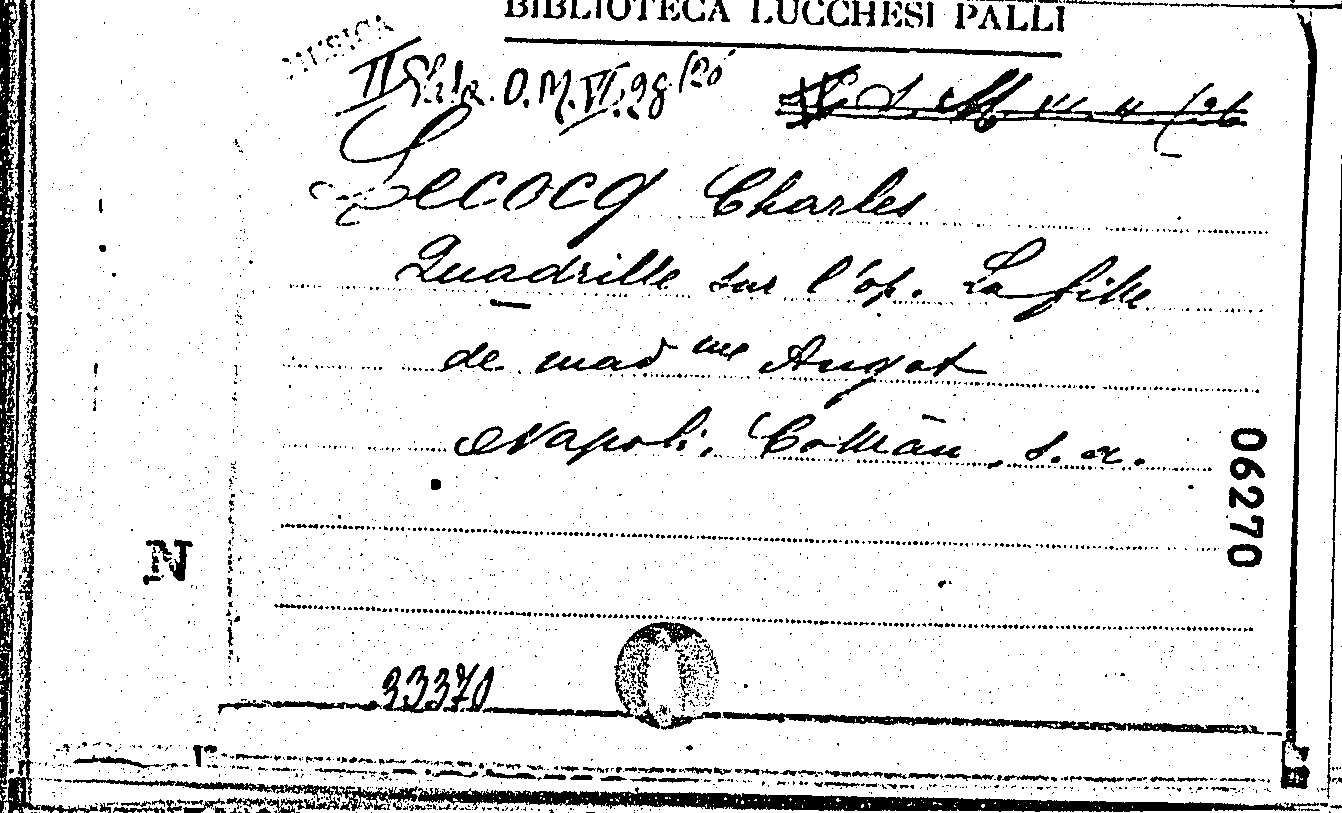 BIBLIOTECA LUCCHESI PALLI
MUSICA
II O.M.VI.28/20
Lecocq Charles
Quadrille sur l'op. La fille
de mad me Angot
Napoli, Cottrau, s. a.
06270
N
33370